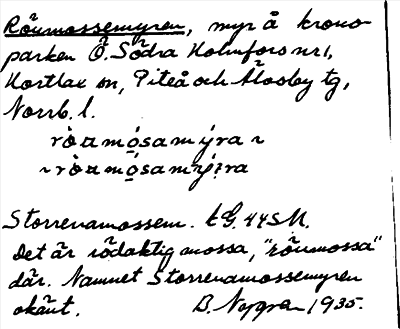 Röumossemyren, myr å krono-
parken Ö. Södra Holmfors nr 1,
Hortlax sn, Piteå och Älvsby tg,
Norrb. l.
ròamósamýra ~
~ròamósamý?ra
Storrenamossem. EG. 44SM.
Det är rödaktig mossa, "röumossa"
där. Namnet Storrenamossemyren
okänt. B. Nygren 1935.